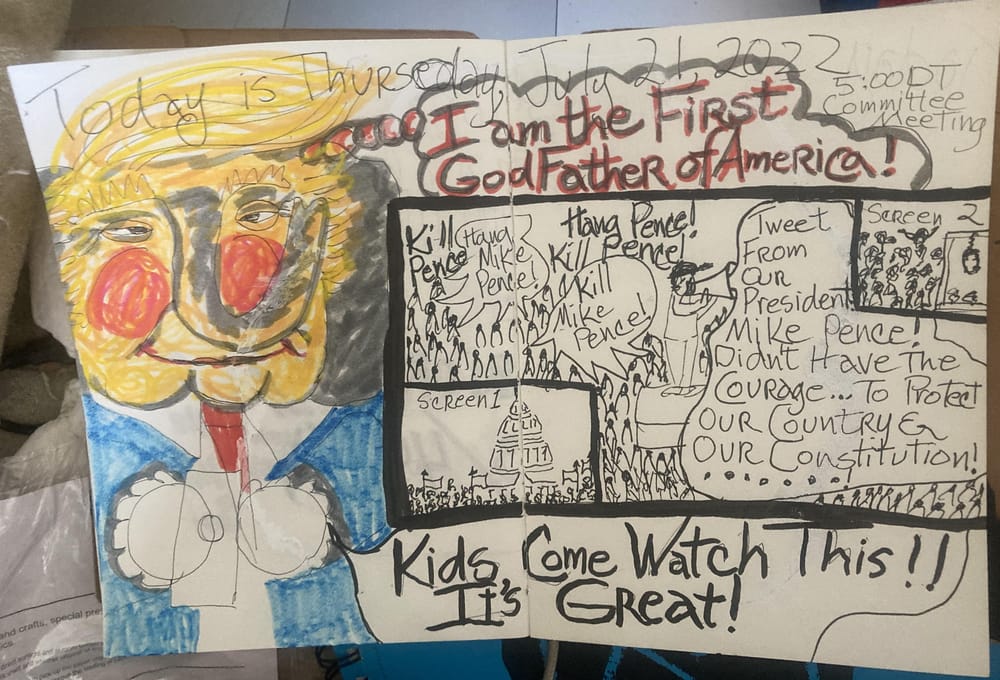 Today is Thurseday, July 21, 2022
5:00 DT
Committee
Meeting
I am the First
GodFather of America!
Kill
Pence
Hang
Mike
Pence!
Hang Pence!
Kill Pence!
Kill
Mike
Pence!
Tweet
From
Our
President
Mike Pence!
Didnt Have the
Courage... To Protect
Our Country &
Our Constitution!
Screen 2
Screen 1
Kids, Come Watch This!!
It's Great!
and crafts, special pre
ics.